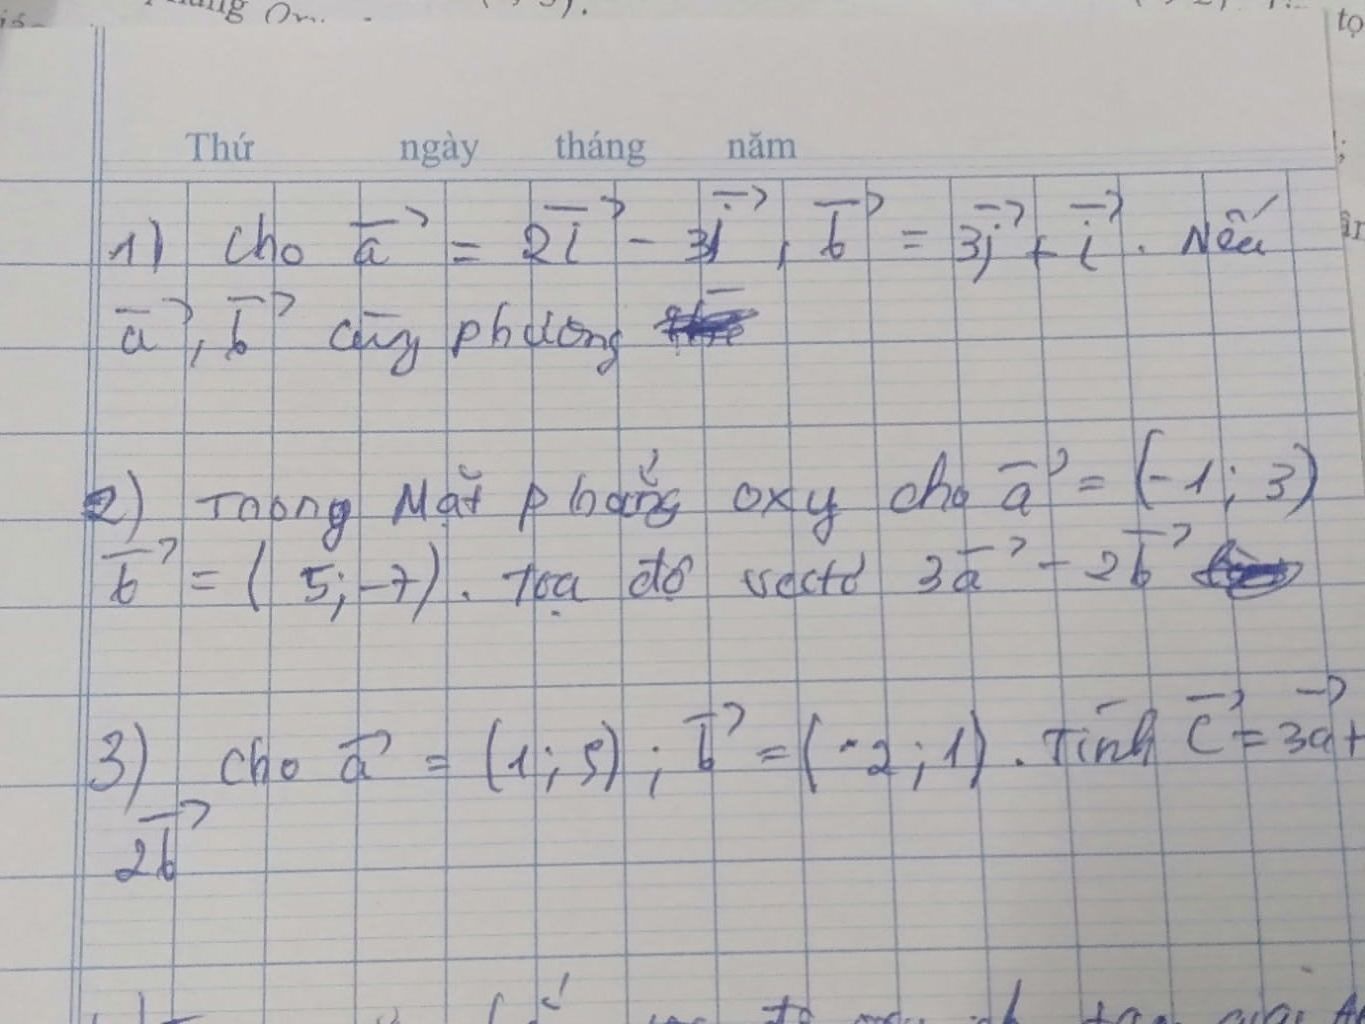 Thứ ngày tháng năm
1) Cho a⃗ = 2i⃗ - 3j⃗ , b⃗ = 3j⃗ + i⃗ . Nếu
a⃗ , b⃗ cùng phương
2) Trong Mặt phẳng oxy cho a⃗ = (-1; 3)
b⃗ = ( 5; -7) . Tọa độ vectơ 3a⃗ - 2b⃗
3) Cho a⃗ = (1; 5) ; b⃗ = (-2; 1) . Tính c⃗ = 3a⃗ +
2b⃗